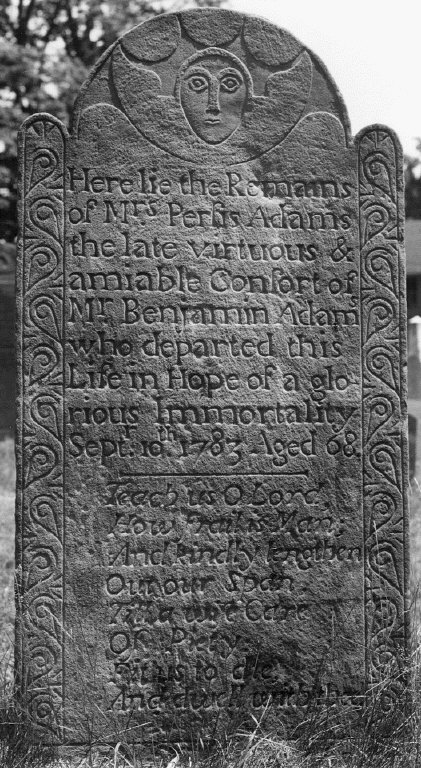 Here lie the Remains
of Mrs Perſis Adams
the late virtuous &
amiable Conſort of
Mr Benjamin Adams
who departed this
Life in Hope of a glo-
rious Immortality
Sept. 10th 1783 Aged 68
Teach us O Lord,
How Frail is Man,
And kindly lengthen
Out our Span,
Till a wiſe Care
Of Piety,
Fit us to die,
And dwell with thee